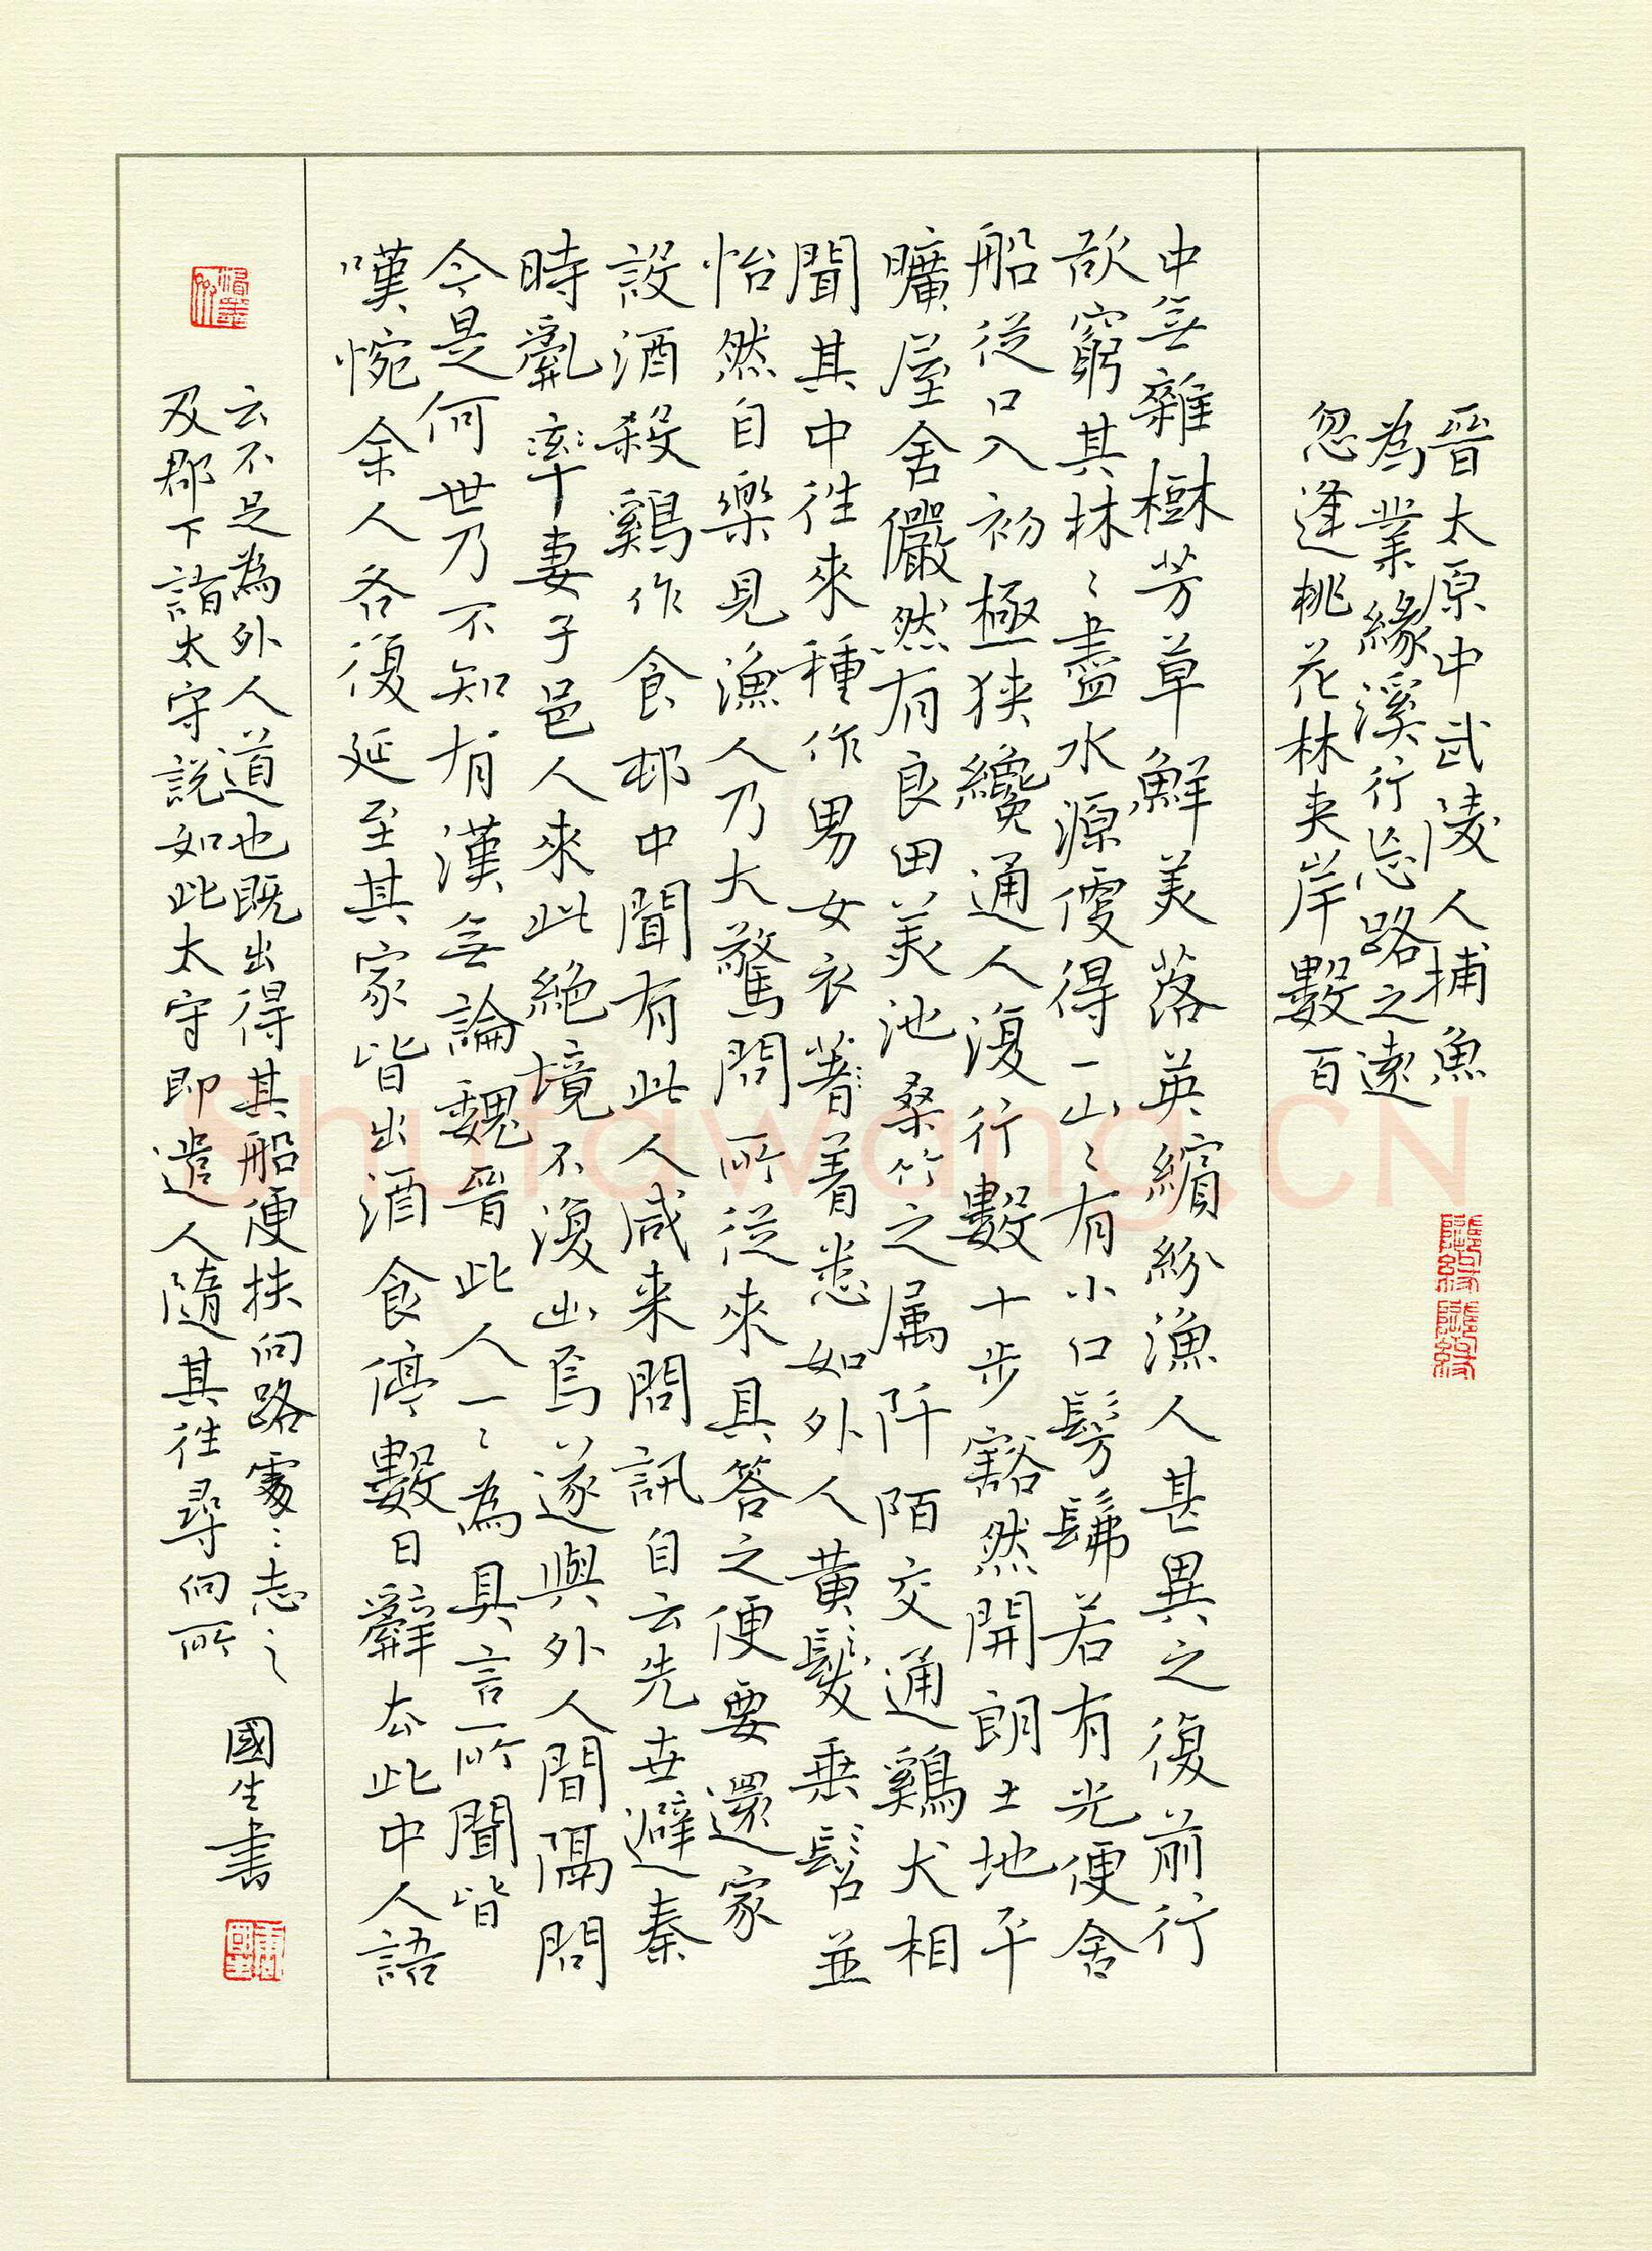 晉太原中武陵人捕魚
為業緣溪行忘路之遠
忽逢桃花林夾岸數百
中無雜樹芳草鮮美落英繽紛漁人甚異之復前行
欲窮其林〻盡水源便得一山〻有小口髣髴若有光便舍
船從口入初極狹纔通人復行數十步豁然開朗土地平
曠屋舍儼然有良田美池桑竹之属阡陌交通鷄犬相
聞其中往來種作男女衣著着悉如外人黄髮垂髫並
怡然自樂見漁人乃大驚問所從來具答之便要還家
設酒殺鷄作食邨中聞有此人咸来問訊自云先世避秦
時亂率妻子邑人來此絕境不復出焉遂與外人間隔問
今是何世乃不知有漢無論魏晉此人一〻為具言所聞皆
嘆惋余人各復延至其家皆出酒食停數日辭去此中人語
云不足為外人道也既出得其船便扶向路處〻志之
及郡下詣太守説如此太守即遣人隨其往尋向所
國生書
Shufawang.CN